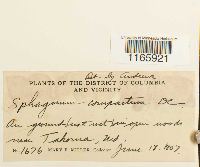 1165921
Det. by Andrews
PLANTS OF THE DISTRICT OF COLUMBIA
AND VICINITY
Sphagnum compactum DC
On ground in open woods
near Takoma, Md.
# 1676 June 18. 1907